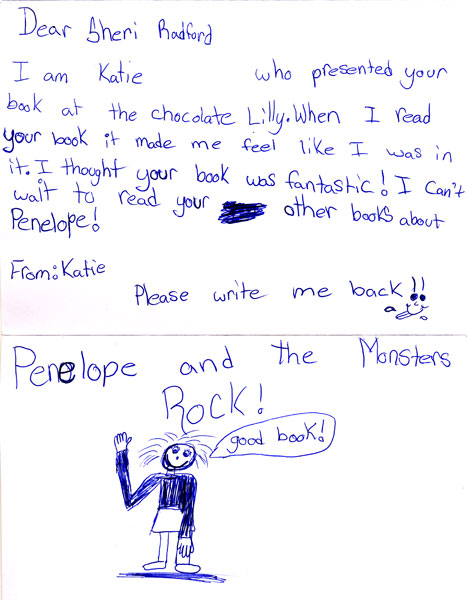 Dear Sheri Radford
I am Katie who presented your
book at the chocolate Lilly. When I read
your book it made me feel like I was in
it. I thought your book was fantastic! I can't
wait to read your other books about
Penelope!
From: Katie
Please write me back!!
Penelope and the Monsters
Rock!
good book!